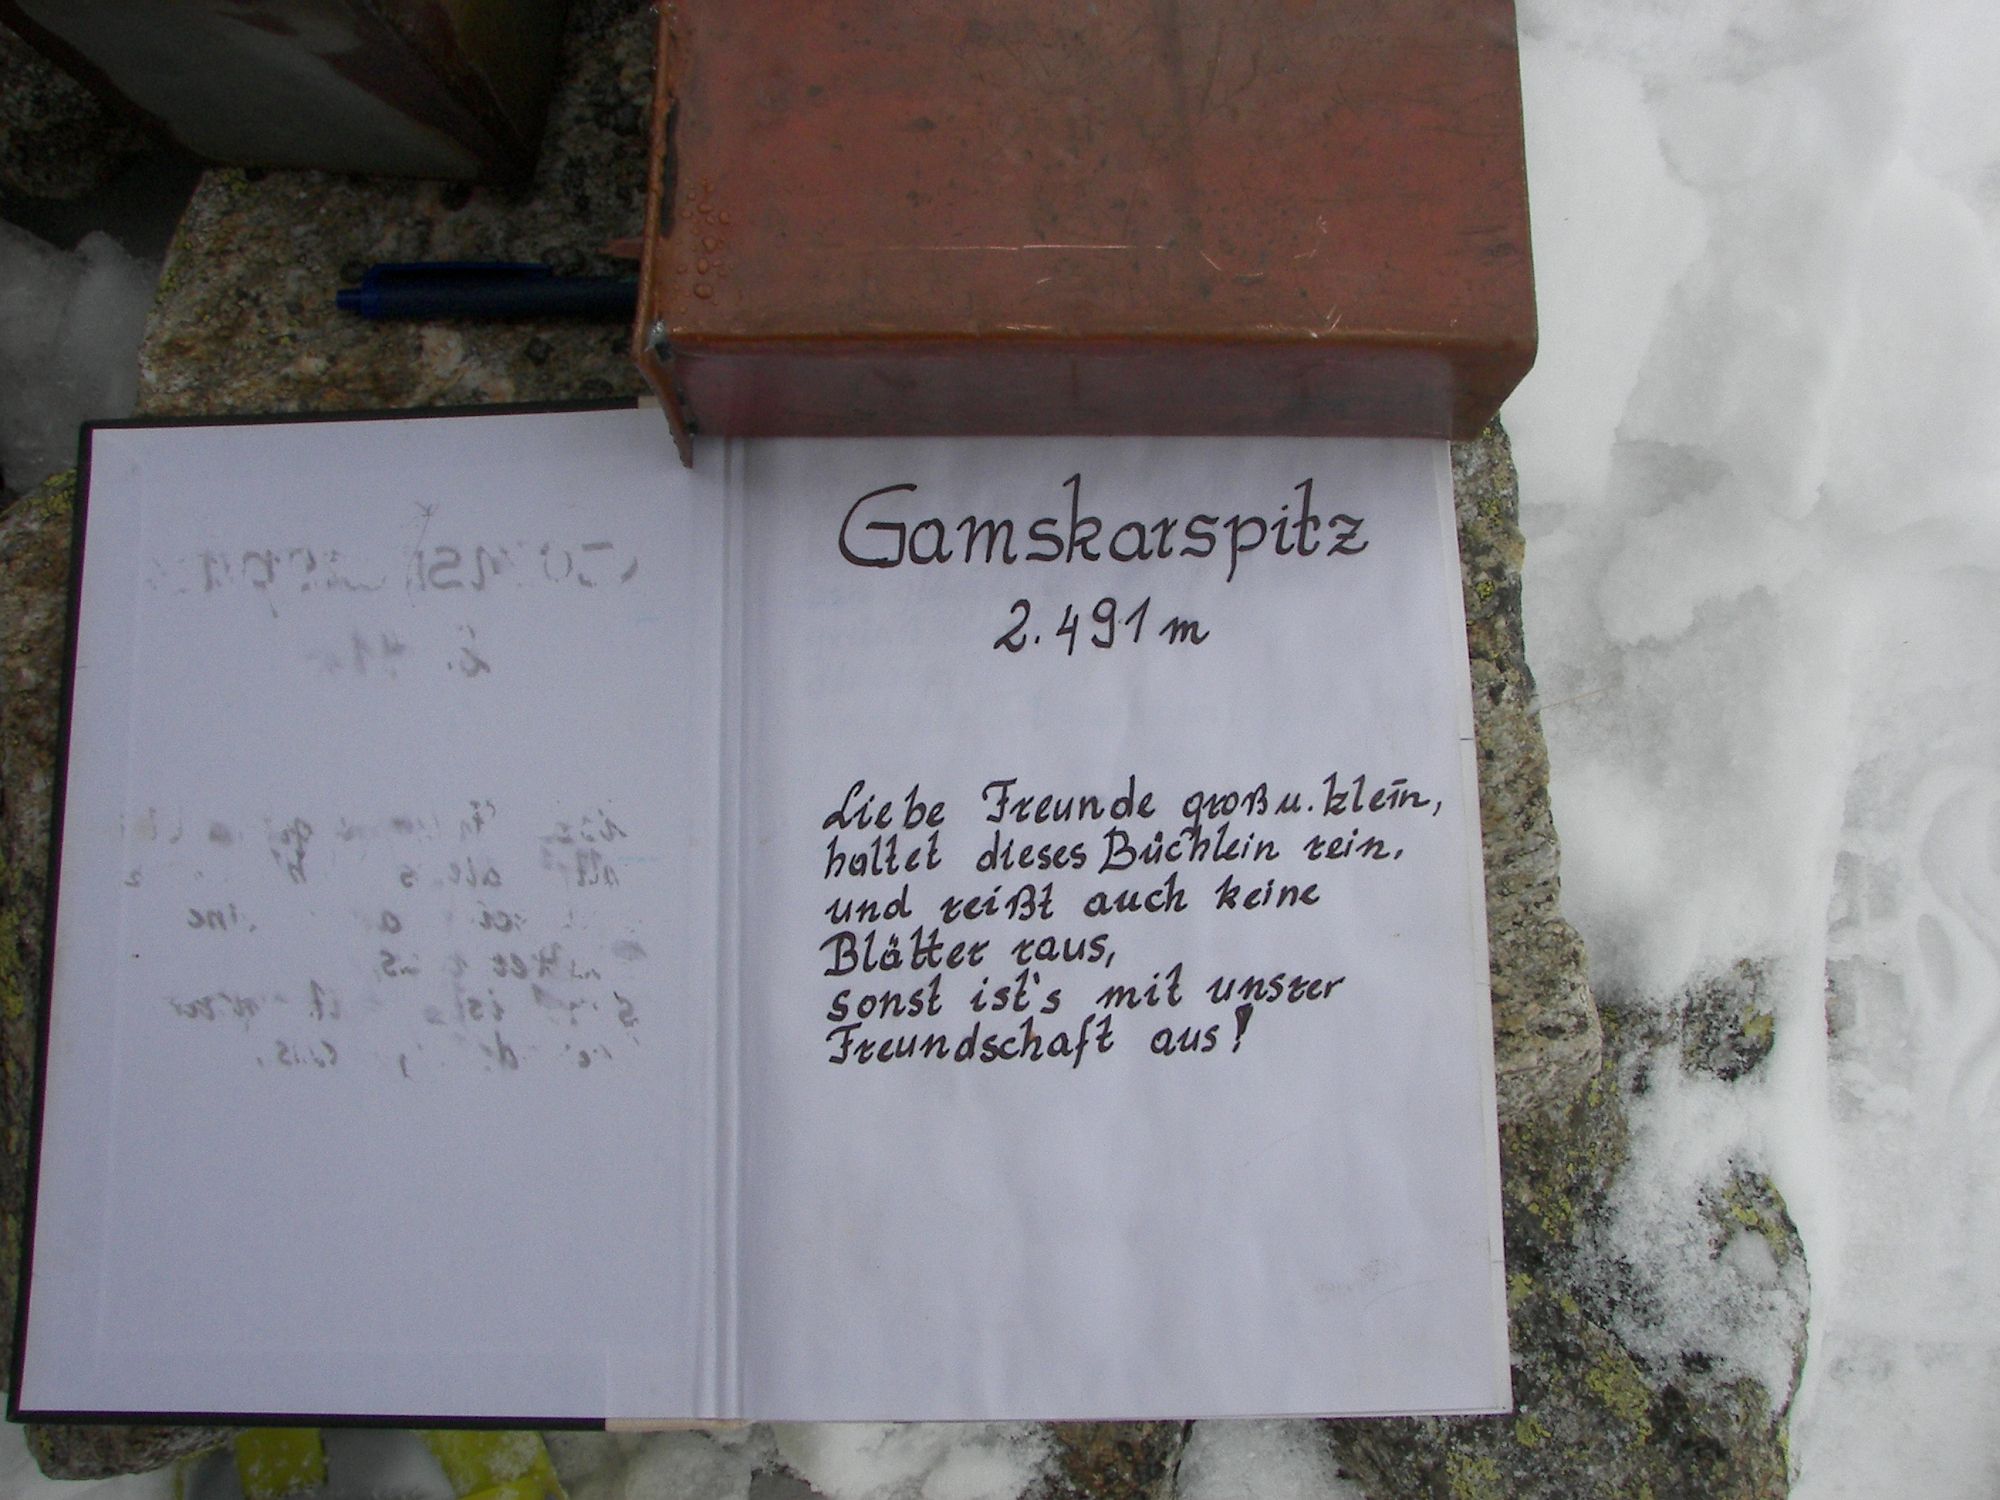 Gamskarspitz
2.491 m
Liebe Freunde groß u. klein,
haltet dieses Büchlein rein,
und reißt auch keine
Blätter raus,
sonst ist's mit unsrer
Freundschaft aus!